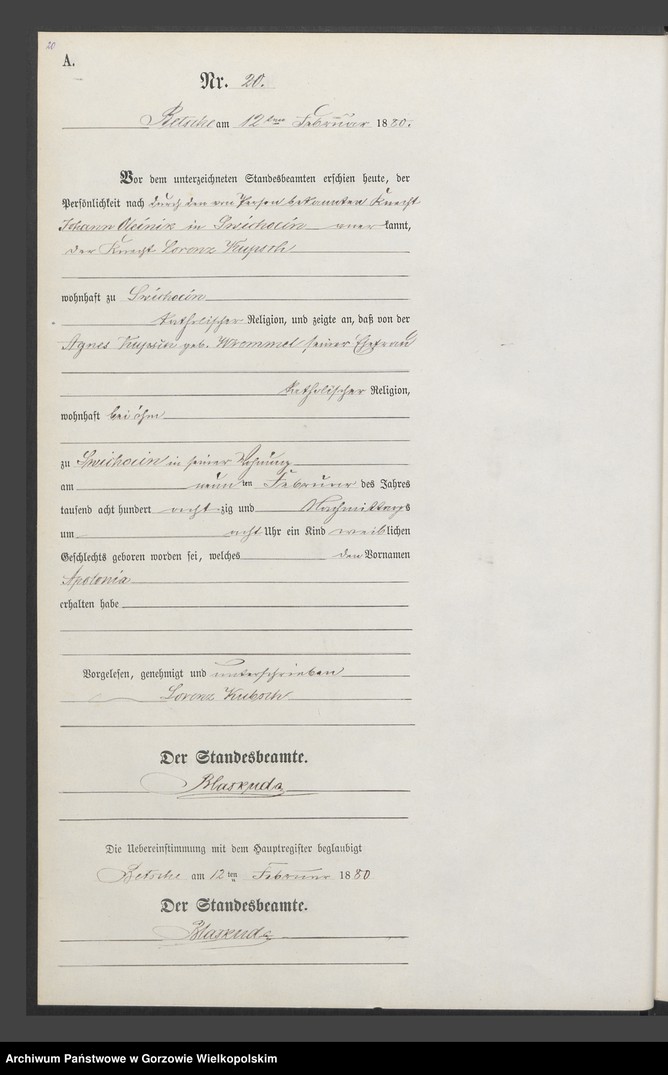 20
A.
Nr. 20.
Betsche am 12ten Februar 1880.
Vor dem unterzeichneten Standesbeamten erschien heute, der
Persönlichkeit nach durch den von Person bekannten Knecht
Johann Oleinik in Swichocin anerkannt,
der Knecht Lorenz Kupsch
wohnhaft zu Swichocin
katholischer Religion, und zeigte an, daß von der
Agnes geb. Wrommel seiner Ehefrau
katholischer Religion,
wohnhaft bei ihm
zu Swichocin in seiner Wohnung
am neunten Februar des Jahres
tausend acht hundert achtzig und Nachmittags
um acht Uhr ein Kind weiblichen
Geschlechts geboren worden sei, welches den Vornamen
Apolonia
erhalten habe
Vorgelesen, genehmigt und unterschrieben
Lorenz Kubsch
Der Standesbeamte.
Blaskuda
Die Uebereinstimmung mit dem Hauptregister beglaubigt
Betsche am 12ten Februar 1880
Der Standesbeamte.
Blaskuda
Archiwum Państwowe w Gorzowie Wielkopolskim